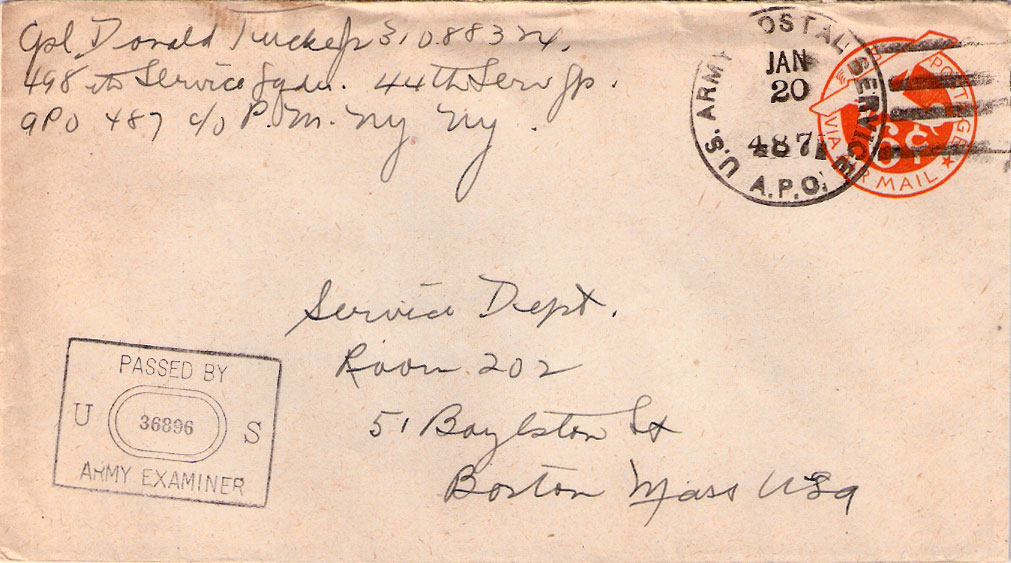 Cpl. Donald Tucker Jr 31088324.
498th Service Sqdn. 44th Serv Gp.
APO 487 c/o P.M. Ny Ny.
U.S. ARMY POSTAL SERVICE
JAN
20
487
A.P.O.
POSTAGE
6¢
VIA AIR MAIL
Service Dept.
Room 202
51 Boylston St
Boston Mass USA
PASSED BY
U 36896 S
ARMY EXAMINER